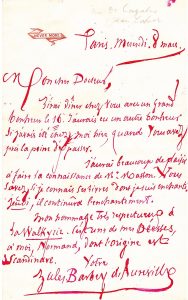 Paris, Mercredi 8 mars.
Mon cher Docteur,
J'irai dîner chez vous avec un grand
bonheur le 16. J'aurais eu un autre bonheur
si j'avais été chez moi hier quand vous avez
pris la peine d'y passer.
J'aurai beaucoup de plaisir
à faire la connaissance de Mr. Masson. Vous
savez, je connais ses livres dont je suis enchanté.
Jeudi, il continuera l'enchantement.
Mon hommage très respectueux à
la Walkyrie. C'est une de mes Déesses,
à moi, Normand, dont l'origine est
Scandinave.
Votre
Jules Barbey d'Aurevilly